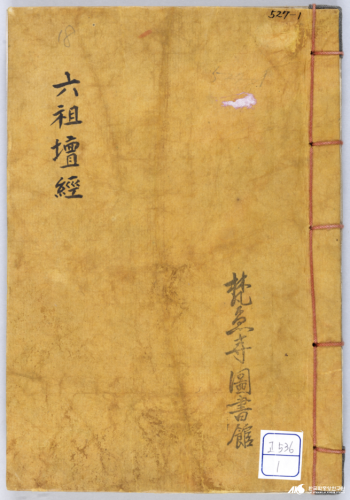 527-1
18
六祖壇經
梵魚寺圖書館
고 536
1